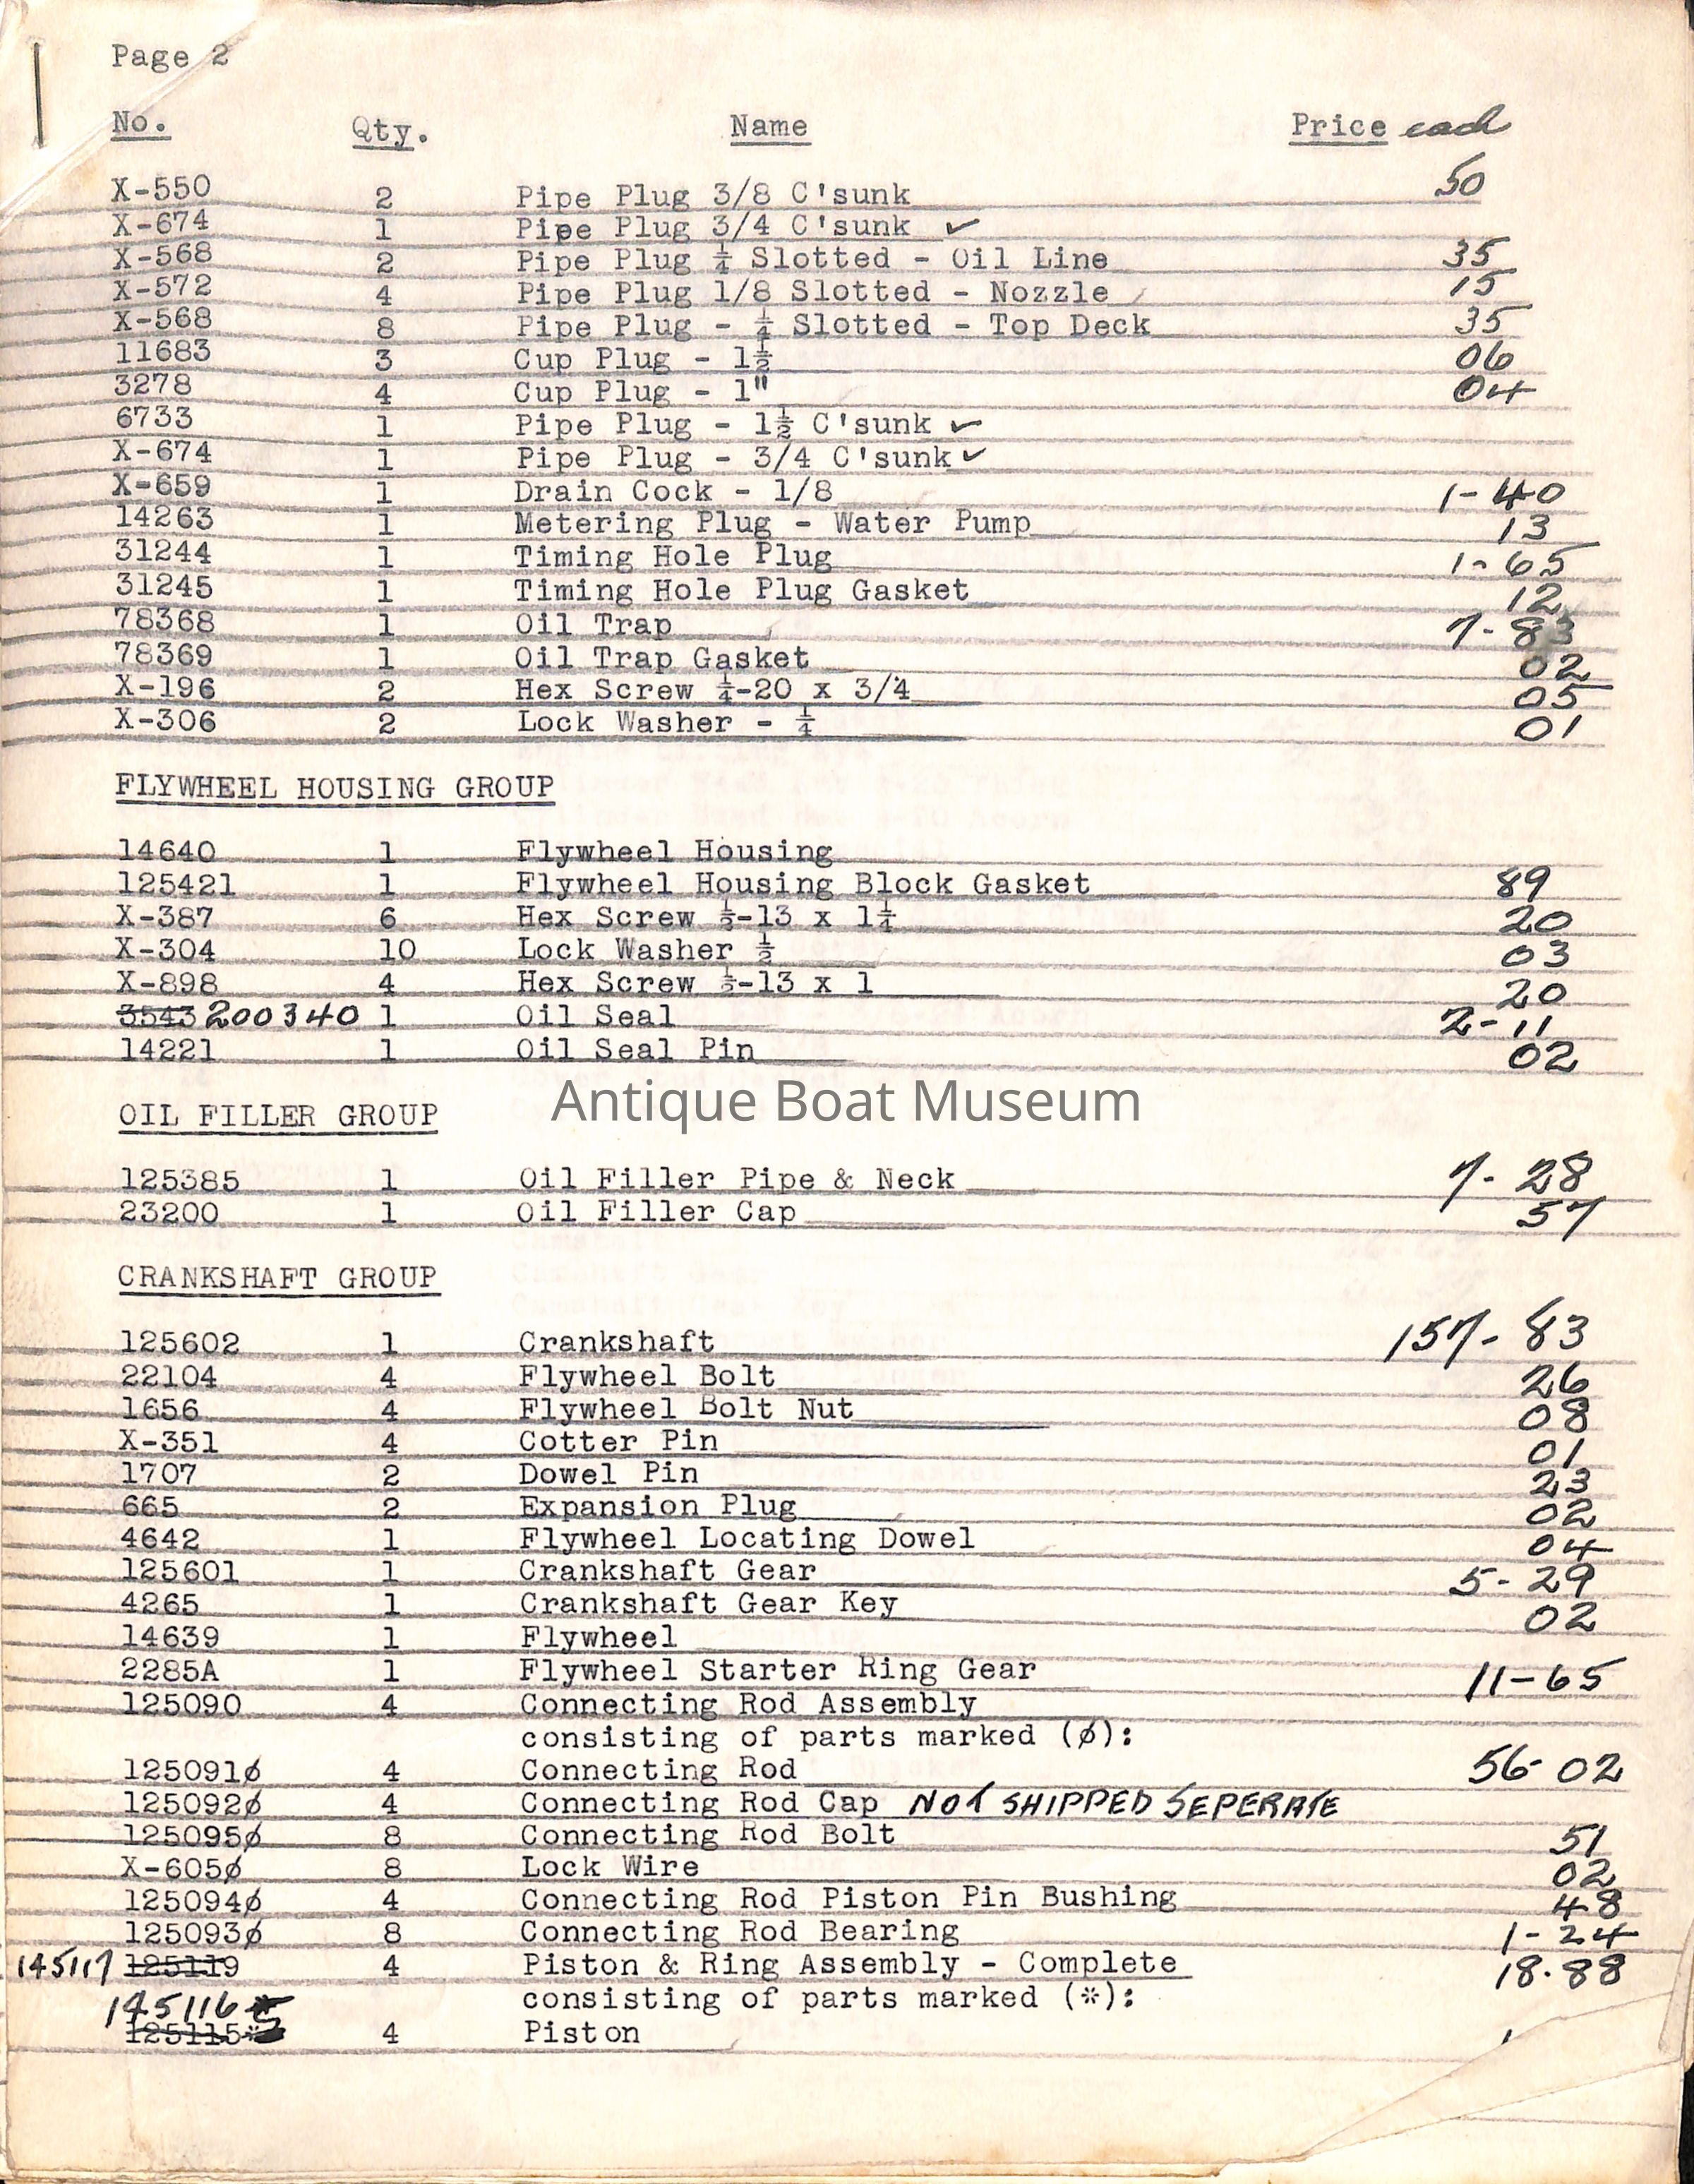 Page 2
No. Qty. Name Price each
X-550 2 Pipe Plug 3/8 C'sunk 50
X-674 1 Pipe Plug 3/4 C'sunk ✓
X-568 2 Pipe Plug ¼ Slotted - Oil Line 35
X-572 4 Pipe Plug 1/8 Slotted - Nozzle 15
X-568 8 Pipe Plug - ¼ Slotted - Top Deck 35
11683 3 Cup Plug - 1½ 06
3278 4 Cup Plug - 1" 04
6733 1 Pipe Plug - 1½ C'sunk ✓
X-674 1 Pipe Plug - 3/4 C'sunk ✓
X-659 1 Drain Cock - 1/8 1-40
14263 1 Metering Plug - Water Pump 13
31244 1 Timing Hole Plug 1-65
31245 1 Timing Hole Plug Gasket 12
78368 1 Oil Trap 7-83
78369 1 Oil Trap Gasket 02
X-196 2 Hex Screw ¼-20 x 3/4 05
X-306 2 Lock Washer - ¼ 01
FLYWHEEL HOUSING GROUP
14640 1 Flywheel Housing
125421 1 Flywheel Housing Block Gasket 89
X-387 6 Hex Screw ½-13 x 1¼ 20
X-304 10 Lock Washer ½ 03
X-898 4 Hex Screw ½-13 x 1 20
3543 200340 1 Oil Seal 2-11
14221 1 Oil Seal Pin 02
Antique Boat Museum
OIL FILLER GROUP
125385 1 Oil Filler Pipe & Neck 7-28
23200 1 Oil Filler Cap 57
CRANKSHAFT GROUP
125602 1 Crankshaft 157-83
22104 4 Flywheel Bolt 26
1656 4 Flywheel Bolt Nut 08
X-351 4 Cotter Pin 01
1707 2 Dowel Pin 23
665 2 Expansion Plug 02
4642 1 Flywheel Locating Dowel 04
125601 1 Crankshaft Gear 5-29
4265 1 Crankshaft Gear Key 02
14639 1 Flywheel
2285A 1 Flywheel Starter Ring Gear 11-65
125090 4 Connecting Rod Assembly
consisting of parts marked (ø):
125091ø 4 Connecting Rod 56-02
125092ø 4 Connecting Rod Cap NOT SHIPPED SEPERATE
125095ø 8 Connecting Rod Bolt 51
X-605ø 8 Lock Wire 02
125094ø 4 Connecting Rod Piston Pin Bushing 48
125093ø 8 Connecting Rod Bearing 1-24
145117 125119 4 Piston & Ring Assembly - Complete 18.88
145116 consisting of parts marked (*):
125115* 4 Piston